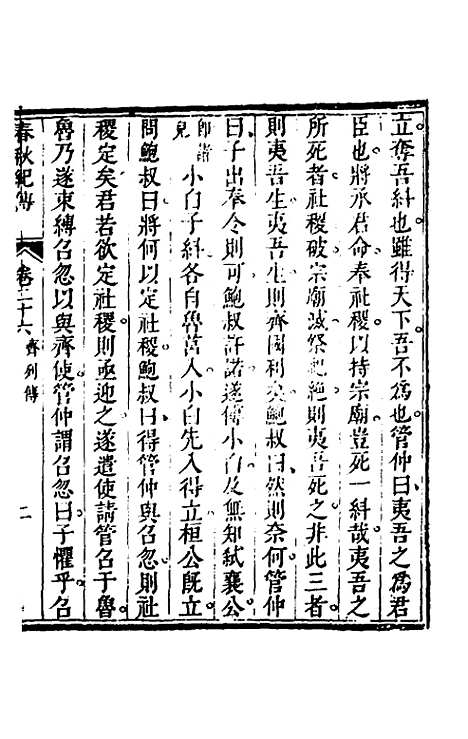 立奪吾糾也雖得天下吾不爲也管仲曰夷吾之爲君
臣也將承君命奉社稷以持宗廟豈死一糾哉夷吾之
所死者社稷破宗廟滅祭祀絶則夷吾死之非此三者
則夷吾生夷吾生則齊國利矣鮑叔曰然則奈何管仲
曰子出奉令則可鮑叔許諾遂傅小白及無知弑襄公
卽諸兒
小白子糾各自魯莒入小白先入得立桓公旣立
問鮑叔曰將何以定社稷鮑叔曰得管仲與召忽則社
稷定矣君若欲定社稷則亟迎之遂遣使請管召于魯
魯乃遂束縛召忽以與齊使管仲謂召忽曰子懼乎召
春秋紀傳
卷二十六
齊列傳
二